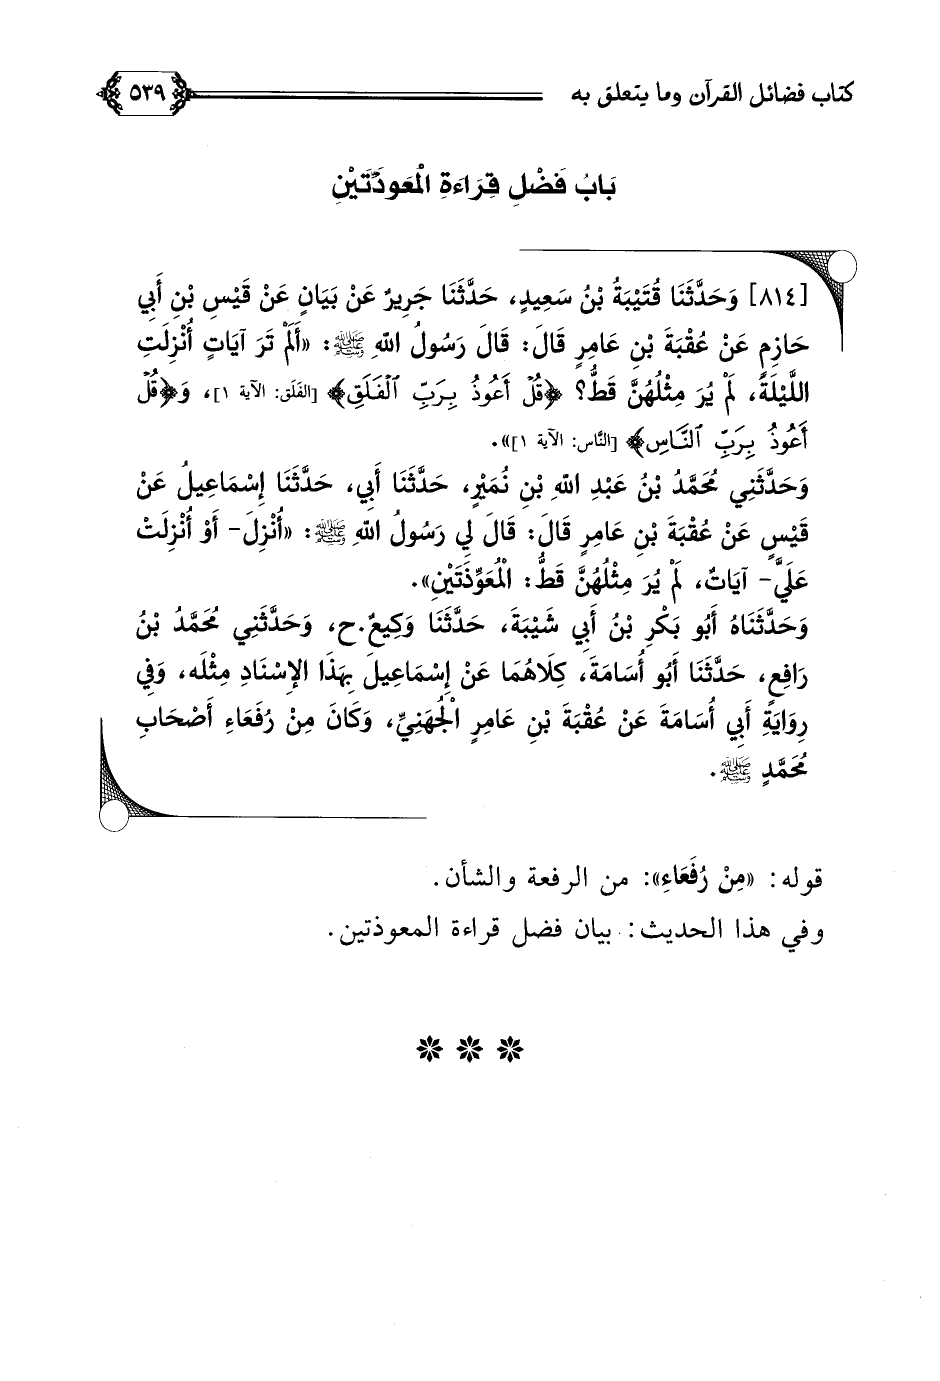 كتاب فضائل القرآن وما يتعلق به ٥٣٩
بَابُ فَضْلِ قِرَاءَةِ الْمَعوذَتَيْنِ
[٨١٤] وَحَدَّثَنَا قُتَيْبَةُ بْنُ سَعِيدٍ، حَدَّثَنَا جَرِيرٌ عَنْ بَيَانٍ عَنْ قَيْسِ بْنِ أَبِي
حَازِمٍ عَنْ عُقْبَةَ بْنِ عَامِرٍ قَالَ: قَالَ رَسُولُ اللهِ ﷺ: «أَلَمْ تَرَ آيَاتٍ أُنْزِلَتِ
اللَّيْلَةَ، لَمْ يُرَ مِثْلُهُنَّ قَطُّ؟ ﴿قُلْ أَعُوذُ بِرَبِّ ٱلْفَلَقِ﴾ [الفَلَق: الآية ١]، وَ﴿قُلْ
أَعُوذُ بِرَبِّ ٱلنَّاسِ﴾ [النَّاس: الآية ١]».
وَحَدَّثَنِي مُحَمَّدُ بْنُ عَبْدِ اللهِ بْنِ نُمَيْرٍ، حَدَّثَنَا أَبِي، حَدَّثَنَا إِسْمَاعِيلُ عَنْ
قَيْسٍ عَنْ عُقْبَةَ بْنِ عَامِرٍ قَالَ: قَالَ لِي رَسُولُ اللهِ ﷺ: «أُنْزِلَ- أَوْ أُنْزِلَتْ
عَلَيَّ- آيَاتٌ، لَمْ يُرَ مِثْلُهُنَّ قَطُّ: الْمُعَوِّذَتَيْنِ».
وَحَدَّثَنَاهُ أَبُو بَكْرِ بْنُ أَبِي شَيْبَةَ، حَدَّثَنَا وَكِيعٌ.ح، وَحَدَّثَنِي مُحَمَّدُ بْنُ
رَافِعٍ، حَدَّثَنَا أَبُو أُسَامَةَ، كِلَاهُمَا عَنْ إِسْمَاعِيلَ بِهَذَا الإِسْنَادِ مِثْلَه، وَفِي
رِوَايَةِ أَبِي أُسَامَةَ عَنْ عُقْبَةَ بْنِ عَامِرٍ الْجُهَنِيِّ، وَكَانَ مِنْ رُفَعَاءِ أَصْحَابِ
مُحَمَّدٍ ﷺ.
قوله: «مِنْ رُفَعَاءِ»: من الرفعة والشأن.
وفي هذا الحديث: بيان فضل قراءة المعوذتين.